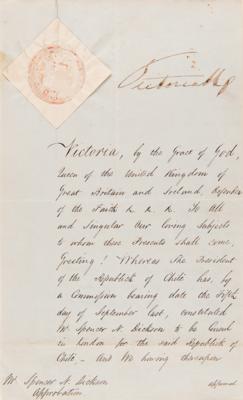 Victoria R
Victoria, by the Grace of God,
Queen of the United Kingdom of
Great Britain and Ireland, Defender
of the Faith &. &. &. To All
and Singular Our loving Subjects
to whom these Presents shall come,
Greeting! Whereas The President
of the Republick of Chile has, by
a Commission bearing date the Fifth
day of September last, constituted
Mr Spencer N. Dickson to be Consul
in London for the said Republick of
Chile, – And We having thereupon
approved
Mr. Spencer N. Dickson
Approbation